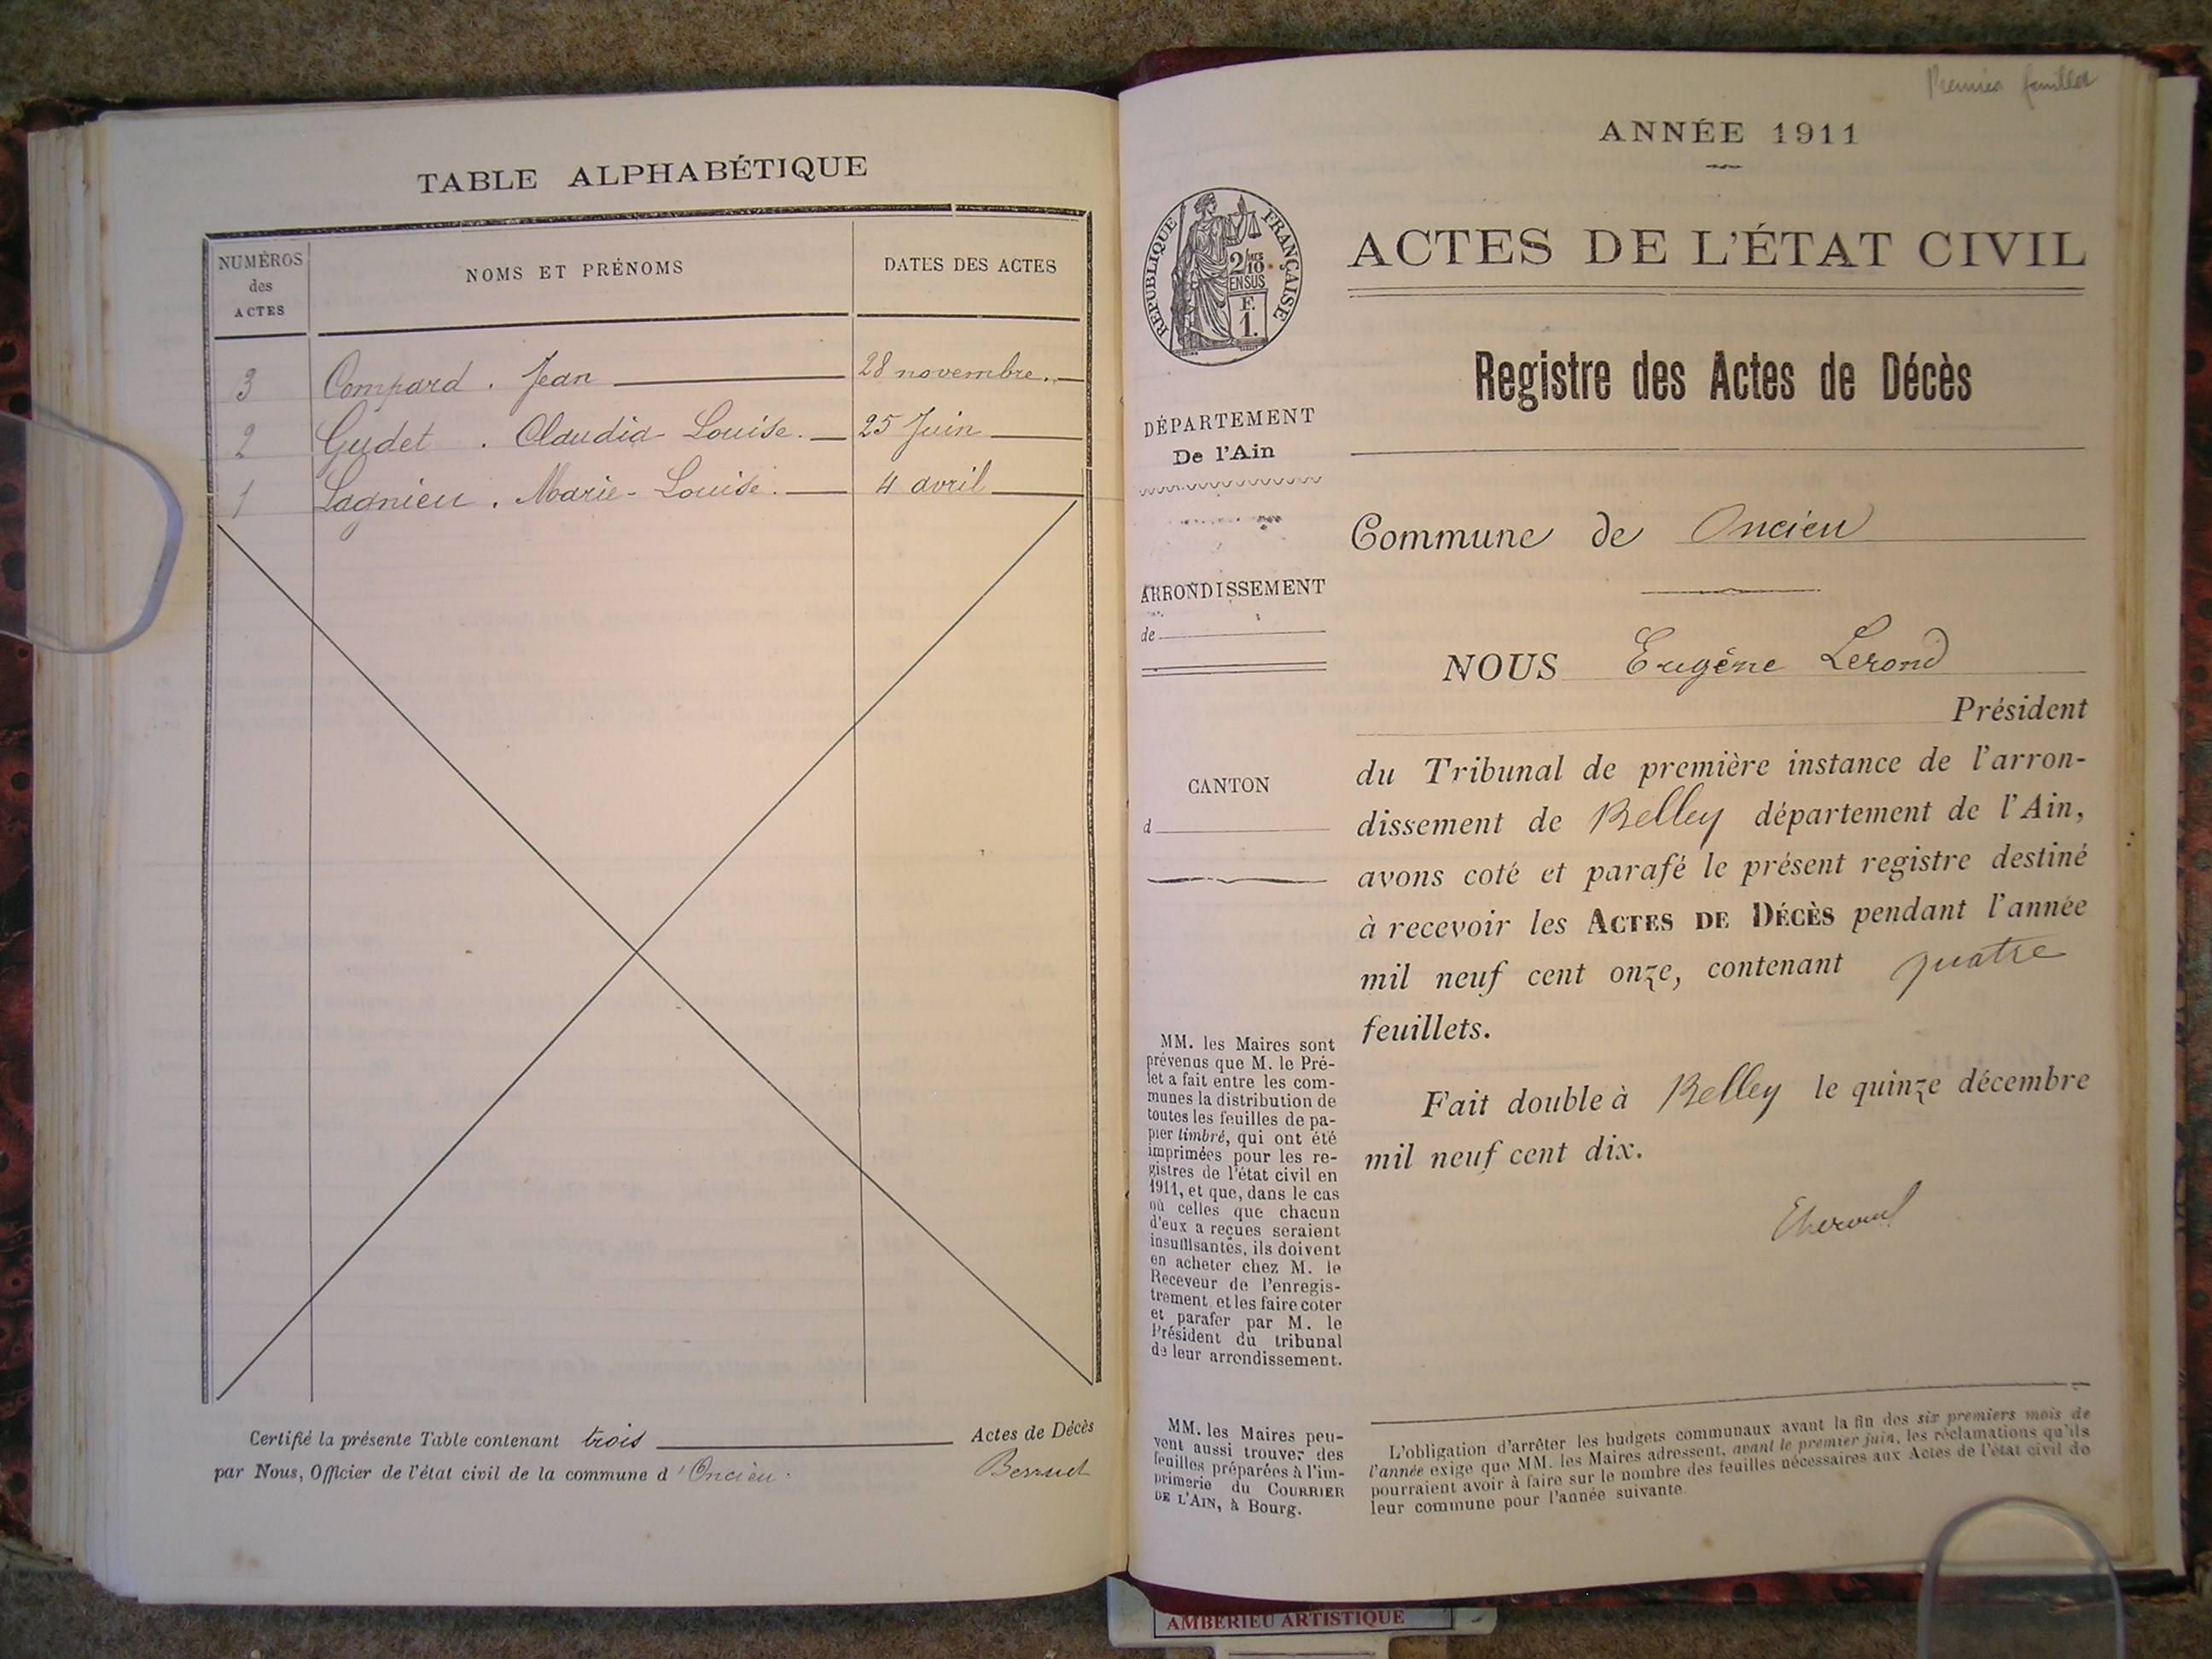 TABLE ALPHABÉTIQUE
NUMÉROS
des
ACTES
NOMS ET PRÉNOMS
DATES DES ACTES
3 Compard. Jean 28 novembre.
2 Gudet. Claudia Louise. 25 Juin
1 Lagnieu. Marie-Louise. 4 avril
Certifié la présente Table contenant trois Actes de Décès
par Nous, Officier de l'état civil de la commune d'Oncieu.
Premier feuillet
ANNÉE 1911
RÉPUBLIQUE FRANÇAISE
2/MES
10
EN SUS
F.
1.
ACTES DE L'ÉTAT CIVIL
Registre des Actes de Décès
DÉPARTEMENT
De l'Ain
ARRONDISSEMENT
de
CANTON
d
Commune de Oncieu
NOUS Eugène Lerond
Président
du Tribunal de première instance de l'arron-
dissement de Belley département de l'Ain,
avons coté et parafé le présent registre destiné
à recevoir les ACTES DE DÉCÈS pendant l'année
mil neuf cent onze, contenant quatre
feuillets.
Fait double à Belley le quinze décembre
mil neuf cent dix.
MM. les Maires sont
prévenus que M. le Pré-
fet a fait entre les com-
munes la distribution de
toutes les feuilles de pa-
pier timbré, qui ont été
imprimées pour les re-
gistres de l'état civil en
1911, et que, dans le cas
où celles que chacun
d'eux a reçues seraient
insuffisantes, ils doivent
en acheter chez M. le
Receveur de l'enregis-
trement et les faire coter
et parafer par M. le
Président du tribunal
de leur arrondissement.
MM. les Maires peu-
vent aussi trouver des
feuilles préparées à l'im-
primerie du COURRIER
DE L'AIN, à Bourg.
L'obligation d'arrêter les budgets communaux avant la fin des six premiers mois de
l'année exige que MM. les Maires adressent, avant le premier juin, les réclamations qu'ils
pourraient avoir à faire sur le nombre des feuilles nécessaires aux Actes de l'état civil de
leur commune pour l'année suivante.
AMBERIEU ARTISTIQUE